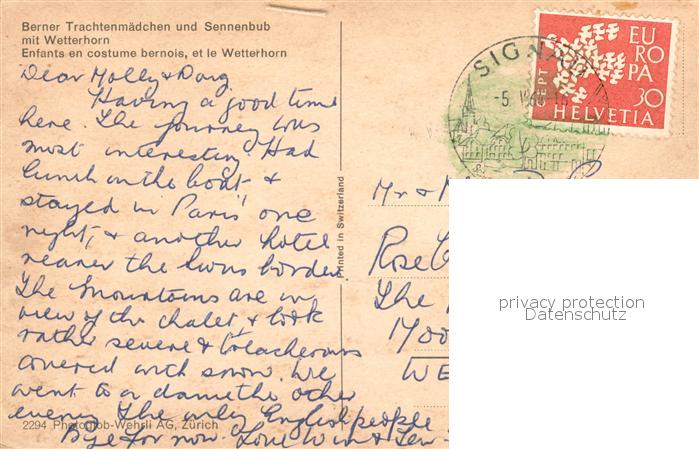 Berner Trachtenmädchen und Sennenbub
mit Wetterhorn
Enfants en costume bernois, et le Wetterhorn
Dear Molly & Doug.
Having a good time
here. The journey was
most interesting. Had
lunch on the boat &
stayed in Paris one
night, & another hotel
nearer the Swiss border.
The Mountains are in
view of the chalet, & look
rather severe & treacherous
covered with snow. We
went to a dance the other
evening The only English people
Bye for now. Love Win &
2294 Photoglob-Wehrli AG, Zürich
Printed in Switzerland
SIGNAU
-5. V
EUROPA
SEPT
30
HELVETIA
Mr &
Rose
The
Moo
WE
privacy protection
Datenschutz